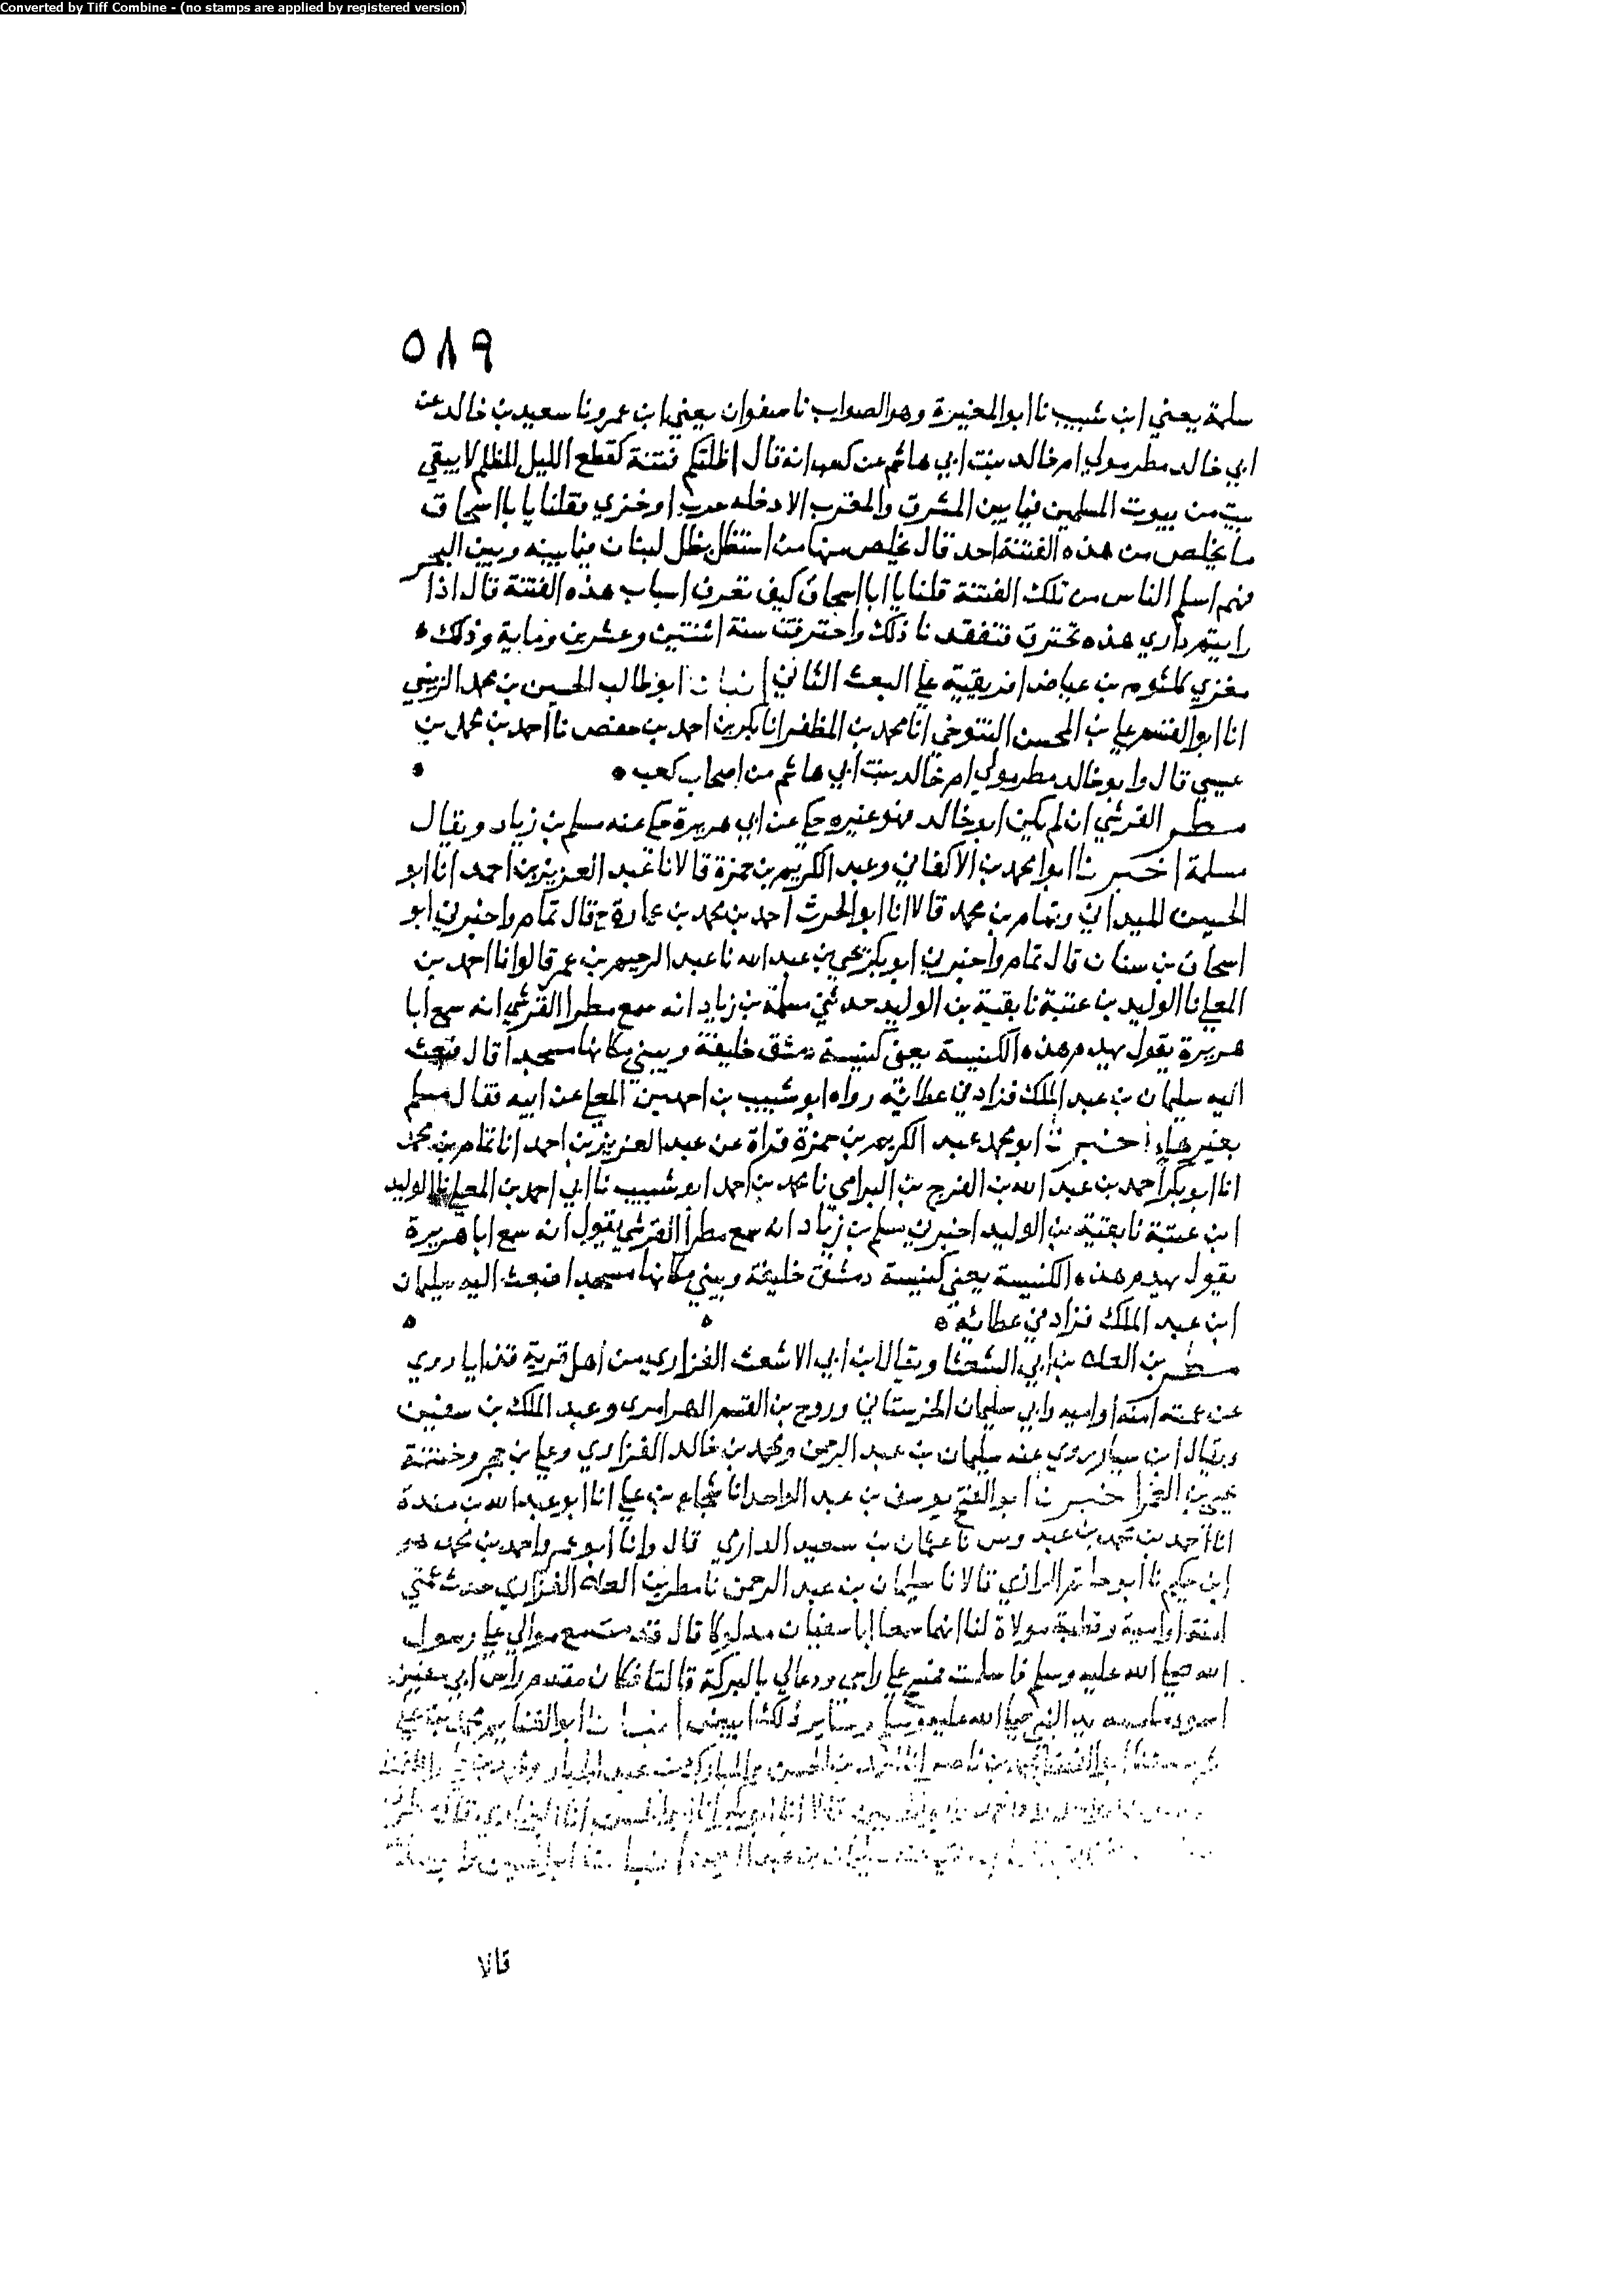 Converted by Tiff Combine - (no stamps are applied by registered version)
٥٨٩
سلمة يعني ابن شبيب نا ابو المغيرة وهو الصواب نا صفوان يعني ابن عمرو نا سعيد بن خالد عن
ابي خالد مطر مولي ام خالد بنت ابي هاشم عن كعب انه قال اظلتكم فتنة كقطع الليل المظلم لا يبقي
بيت من بيوت المسلمين فيما بين المشرق والمغرب الا دخله حرب او خزي فقلنا يا با اسحاق
ما يخلص من هذه الفتنة احد قال يخلص منها من استظل بظل لبنان فيما بينه وبين البحر
فهم اسلم الناس من تلك الفتنة قلنا يا ابا اسحاق كيف نعرف اسباب هذه الفتنة قال اذا
رايتم داري هذه تحترق فتفقدنا ذلك واحترقت سنة اثنتين وعشرين وماية وذلك
مغزي كلثوم بن عياض افريقية علي البعث الثاني انبانا ابو طالب الحسين بن محمد الزينبي
انا ابو القسم علي بن المحسن التنوخي انا محمد بن المظفر انا بكر بن احمد بن حفص نا احمد بن محمد بن
عيسي قال وابو خالد مطر مولي ام خالد بنت ابي هاشم من اصحاب كعب
مطر القرشي ان لم يكن ابو خالد فهو غيره حكي عن ابي هريرة حكي عنه مسلم بن زياد ويقال
مسلمة اخبرنا ابو محمد بن الاكفاني وعبد الكريم بن حمزة قالا نا عبد العزيز بن احمد انا ابو
الحسين الميداني وتمام بن محمد قالا انا ابو الحرث احمد بن محمد بن عمارة ح قال تمام واخبرني ابو
اسحاق بن سنان قال تمام واخبرني ابو بكر يحيي بن عبد الله نا عبد الرحيم بن عمر قالوا نا احمد بن
المعلي نا الوليد بن عتبة نا بقية بن الوليد حدثني مسلمة بن زياد انه سمع مطرا القرشي انه سمع ابا
هريرة يقول يهدم هذه الكنيسة يعني كنيسة دمشق خليفة ويبني مكانها مسجدا قال فبعث
اليه سليمان بن عبد الملك فزاد في عطائه رواه ابو شبيب بن احمد بن المعلي عن ابيه فقال مسلم
بغير هاء اخبرنا ابو محمد عبد الكريم بن حمزة قراة عن عبد العزيز بن احمد انا تمام بن محمد
انا ابو بكر احمد بن عبد الله بن الفرج بن البرامي نا محمد بن احمد ابو شبيب نا ابي احمد بن المعلي نا الوليد
ابن عتبة نا بقية بن الوليد اخبرني مسلم بن زياد انه سمع مطرا القرشي يقول انه سمع ابا هريرة
يقول يهدم هذه الكنيسة يعني كنيسة دمشق خليفة ويبني مكانها مسجدا فبعث اليه سليمان
ابن عبد الملك فزاد في عطائه
مطر بن العلاء بن ابي الشعثا ويقال ابن ابي الاشعث الفزاري من اهل قرية فذايا روي
عن عمته امنه او اميه وابي سليمان الحرستاني وروح بن القسم وعبد الملك بن سفين
ويقال ابن سيار روي عنه سليمان بن عبد الرحمن ومحمد بن خالد الفزاري وعلي بن حجر
اخبرنا ابو الفتح يوسف بن عبد الواحد انا شجاع بن علي انا ابو عبد الله بن مندة
انا احمد بن محمد بن عبدوس نا عثمان بن سعيد الدارمي قال وانا ابو عمرو احمد بن محمد هو
ابن حكيم نا ابو حاتم الرازي قالا نا سليمان بن عبد الرحمن نا مطر بن العلاء الفزاري حدثتني عمتي
امنة او امية مولاة لنا انهما سمعا ابا سفيان مدلوكا قال قدمت مع موالي علي رسول
الله صلي الله عليه وسلم فاسلمت فمسح علي راسي ودعا لي بالبركة قالتا فكان مقدم راس ابي سفين
اسود ما مسه يد النبي صلي الله عليه وسلم وسايره ذلك ابيض
قالا